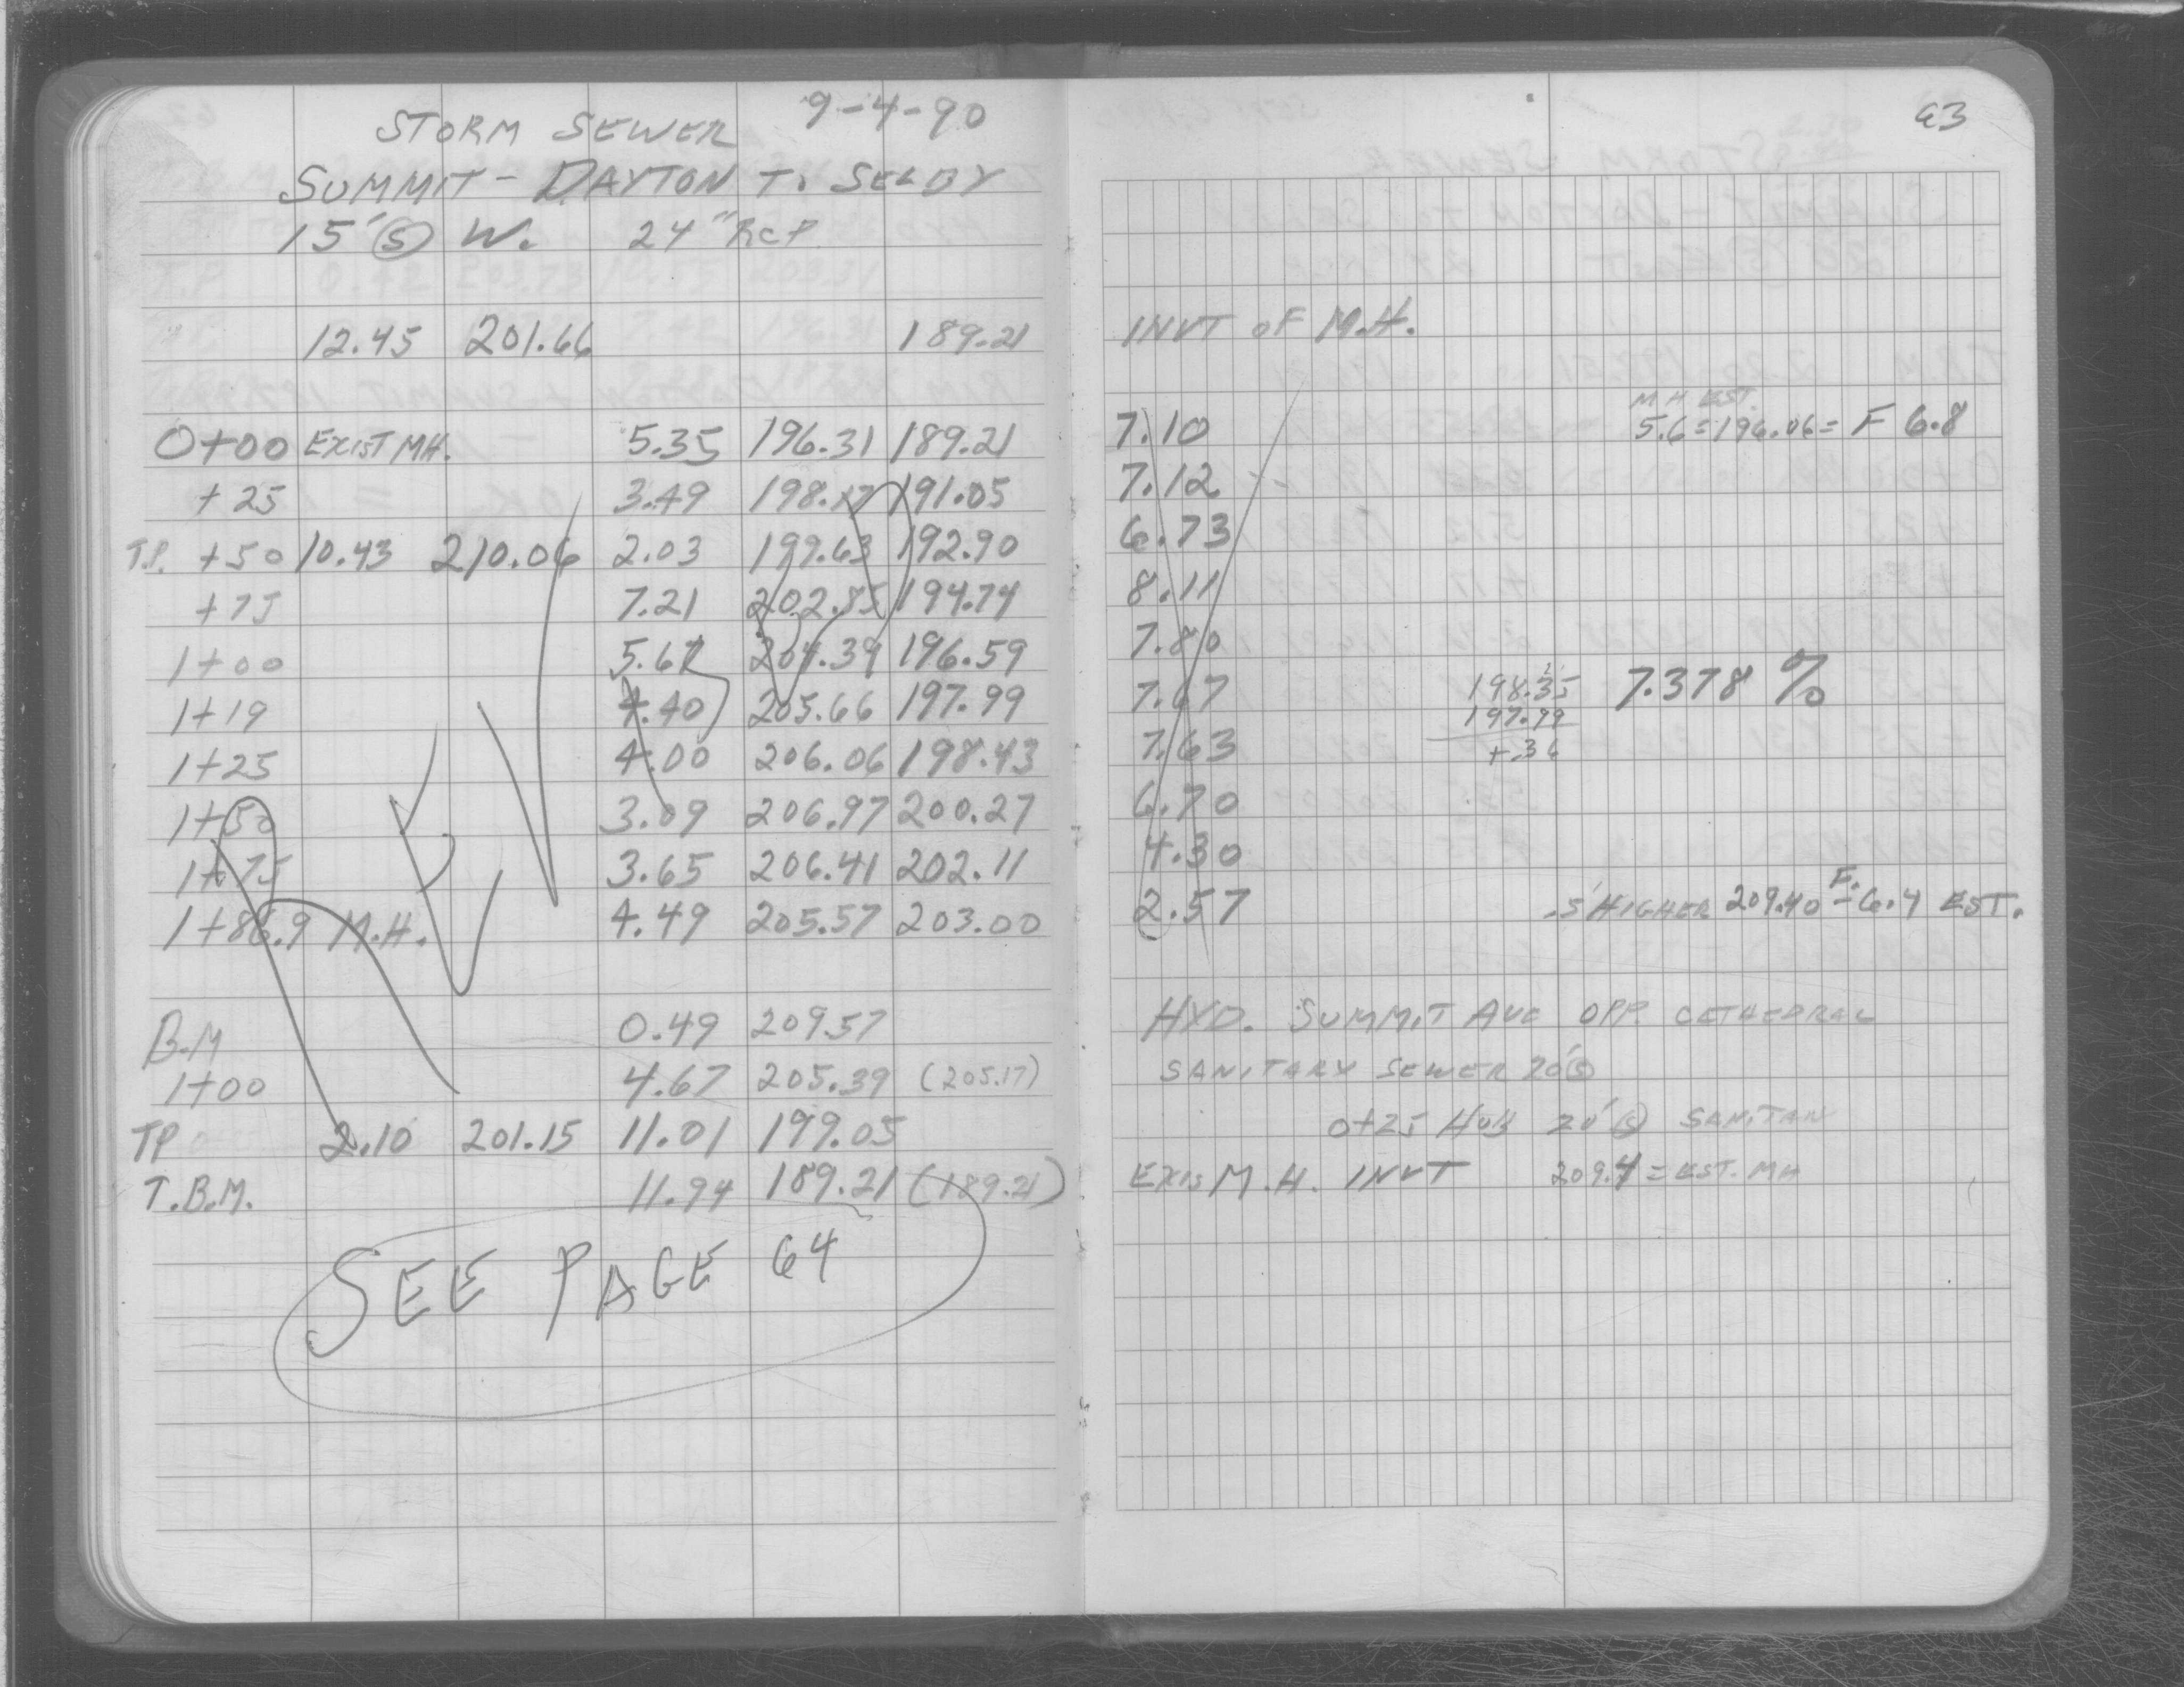 STORM SEWER 9-4-90
SUMMIT - DAYTON T. SELBY
15' (S) W. 24" RCP
12.45 201.66 189.21
0+00 EXIST MH. 5.35 196.31 189.21
+25 3.49 198.17 191.05
T.P. +50 10.43 210.06 2.03 199.63 192.90
+75 7.21 202.85 194.74
1+00 5.67 204.39 196.59
1+19 4.40 205.66 197.99
1+25 4.00 206.06 198.43
1+50 3.09 206.97 200.27
1+75 3.65 206.41 202.11
1+86.9 M.H. 4.49 205.57 203.00
B.M 0.49 209.57
1+00 4.67 205.39 (205.17)
TP 2.10 201.15 11.01 199.05
T.B.M. 11.94 189.21 (189.21)
SEE PAGE 64
63
INVT OF M.H.
M H EST.
7.10 5.6=196.06= F 6.8
7.12
6.73
8.11
7.80
7.67 198.35 7.378 %
197.99
7.63 +.36
6.70
4.30
2.57 .5' HIGHER 209.40 - F. 6.4 EST.
HYD. SUMMIT AVE OPP. CETHEDRAL
SANITARY SEWER 20' (S)
0+25 HUB 20' (S) SANITAN
EXIS M.H. INVT 209.4 = EST. MH